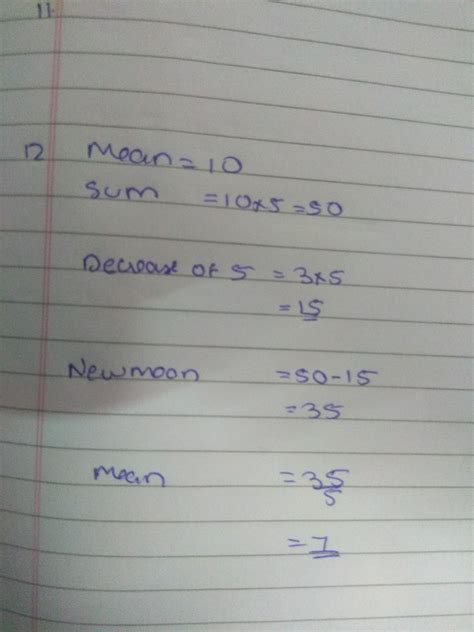 11.
12 Mean = 10
Sum = 10x5 = 50
Decrease of 5 = 3x5
= 15
New moon = 50-15
= 35
Mean = 35
5
= 7